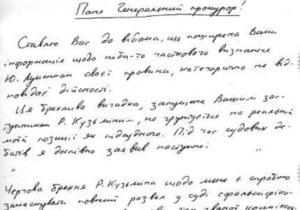 Пане Генеральний прокурор!
Ставлю Вас до відома, що поширена Вами
інформація щодо нібито часткового визнання
Ю. Луценком своєї провини, категорично не від-
повідає дійсності.
Ця брехлива вигадка, запущена Вашим зас-
тупником Р. Кузьміним, не ґрунтується на реальній
моїй позиції як підсудного. Під час судових де-
батів я дослівно заявив наступне:
Чергова брехня Р. Кузьміна щодо мене є спробою
замаскувати повний розвал у суді сфальсифіко-